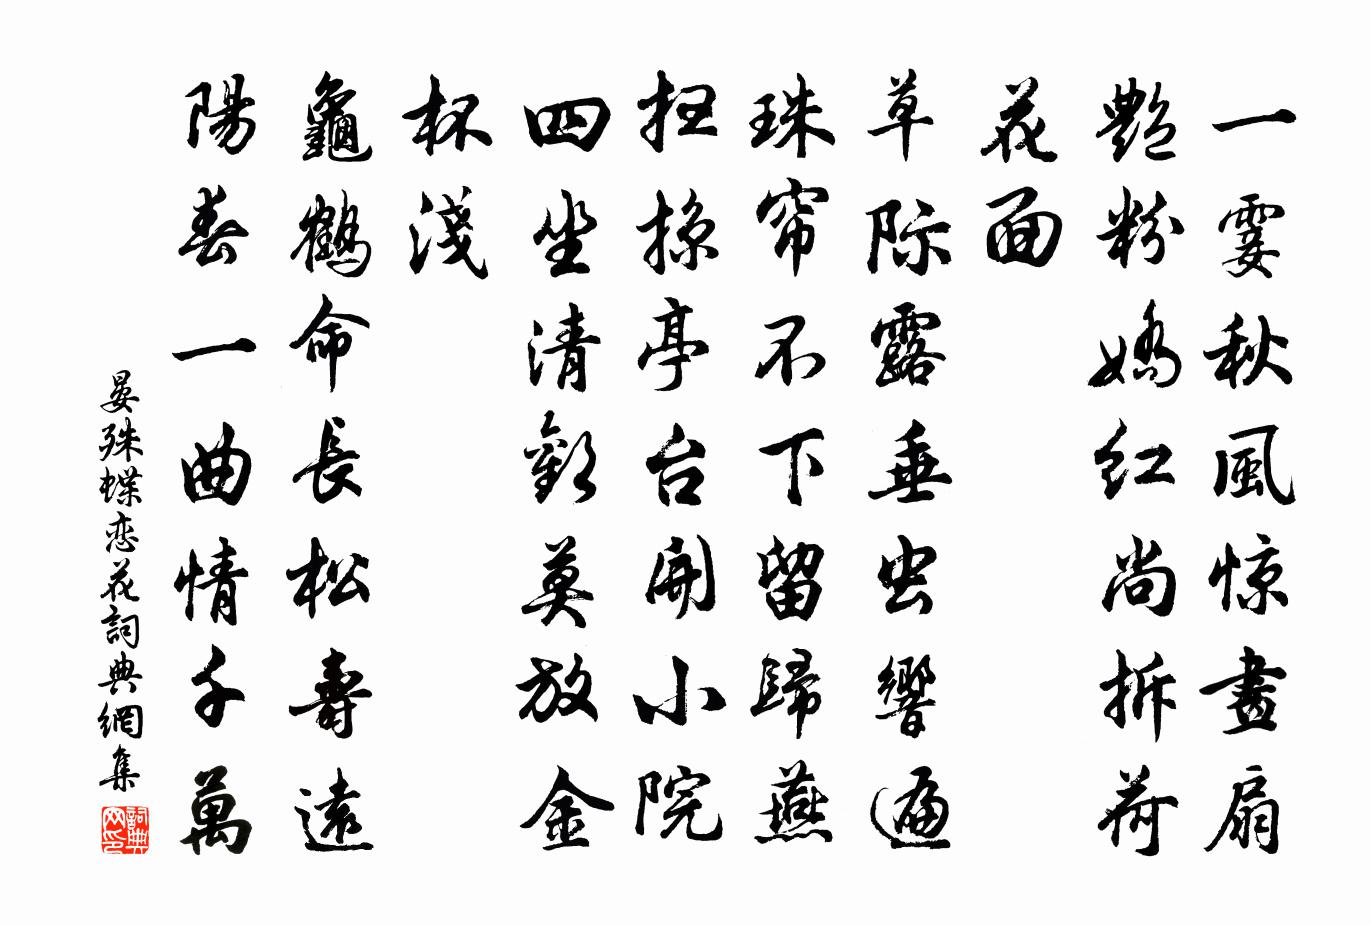 一霎秋風惊畫扇
艷粉嬌红尚拆荷
花面
草际露垂虫響遍
珠帘不下留歸燕
扫掠亭台開小院
四坐清歡莫放金
杯淺
龜鶴命長松壽遠
陽春一曲情千萬
晏殊蝶恋花詞典網集
詞典网印